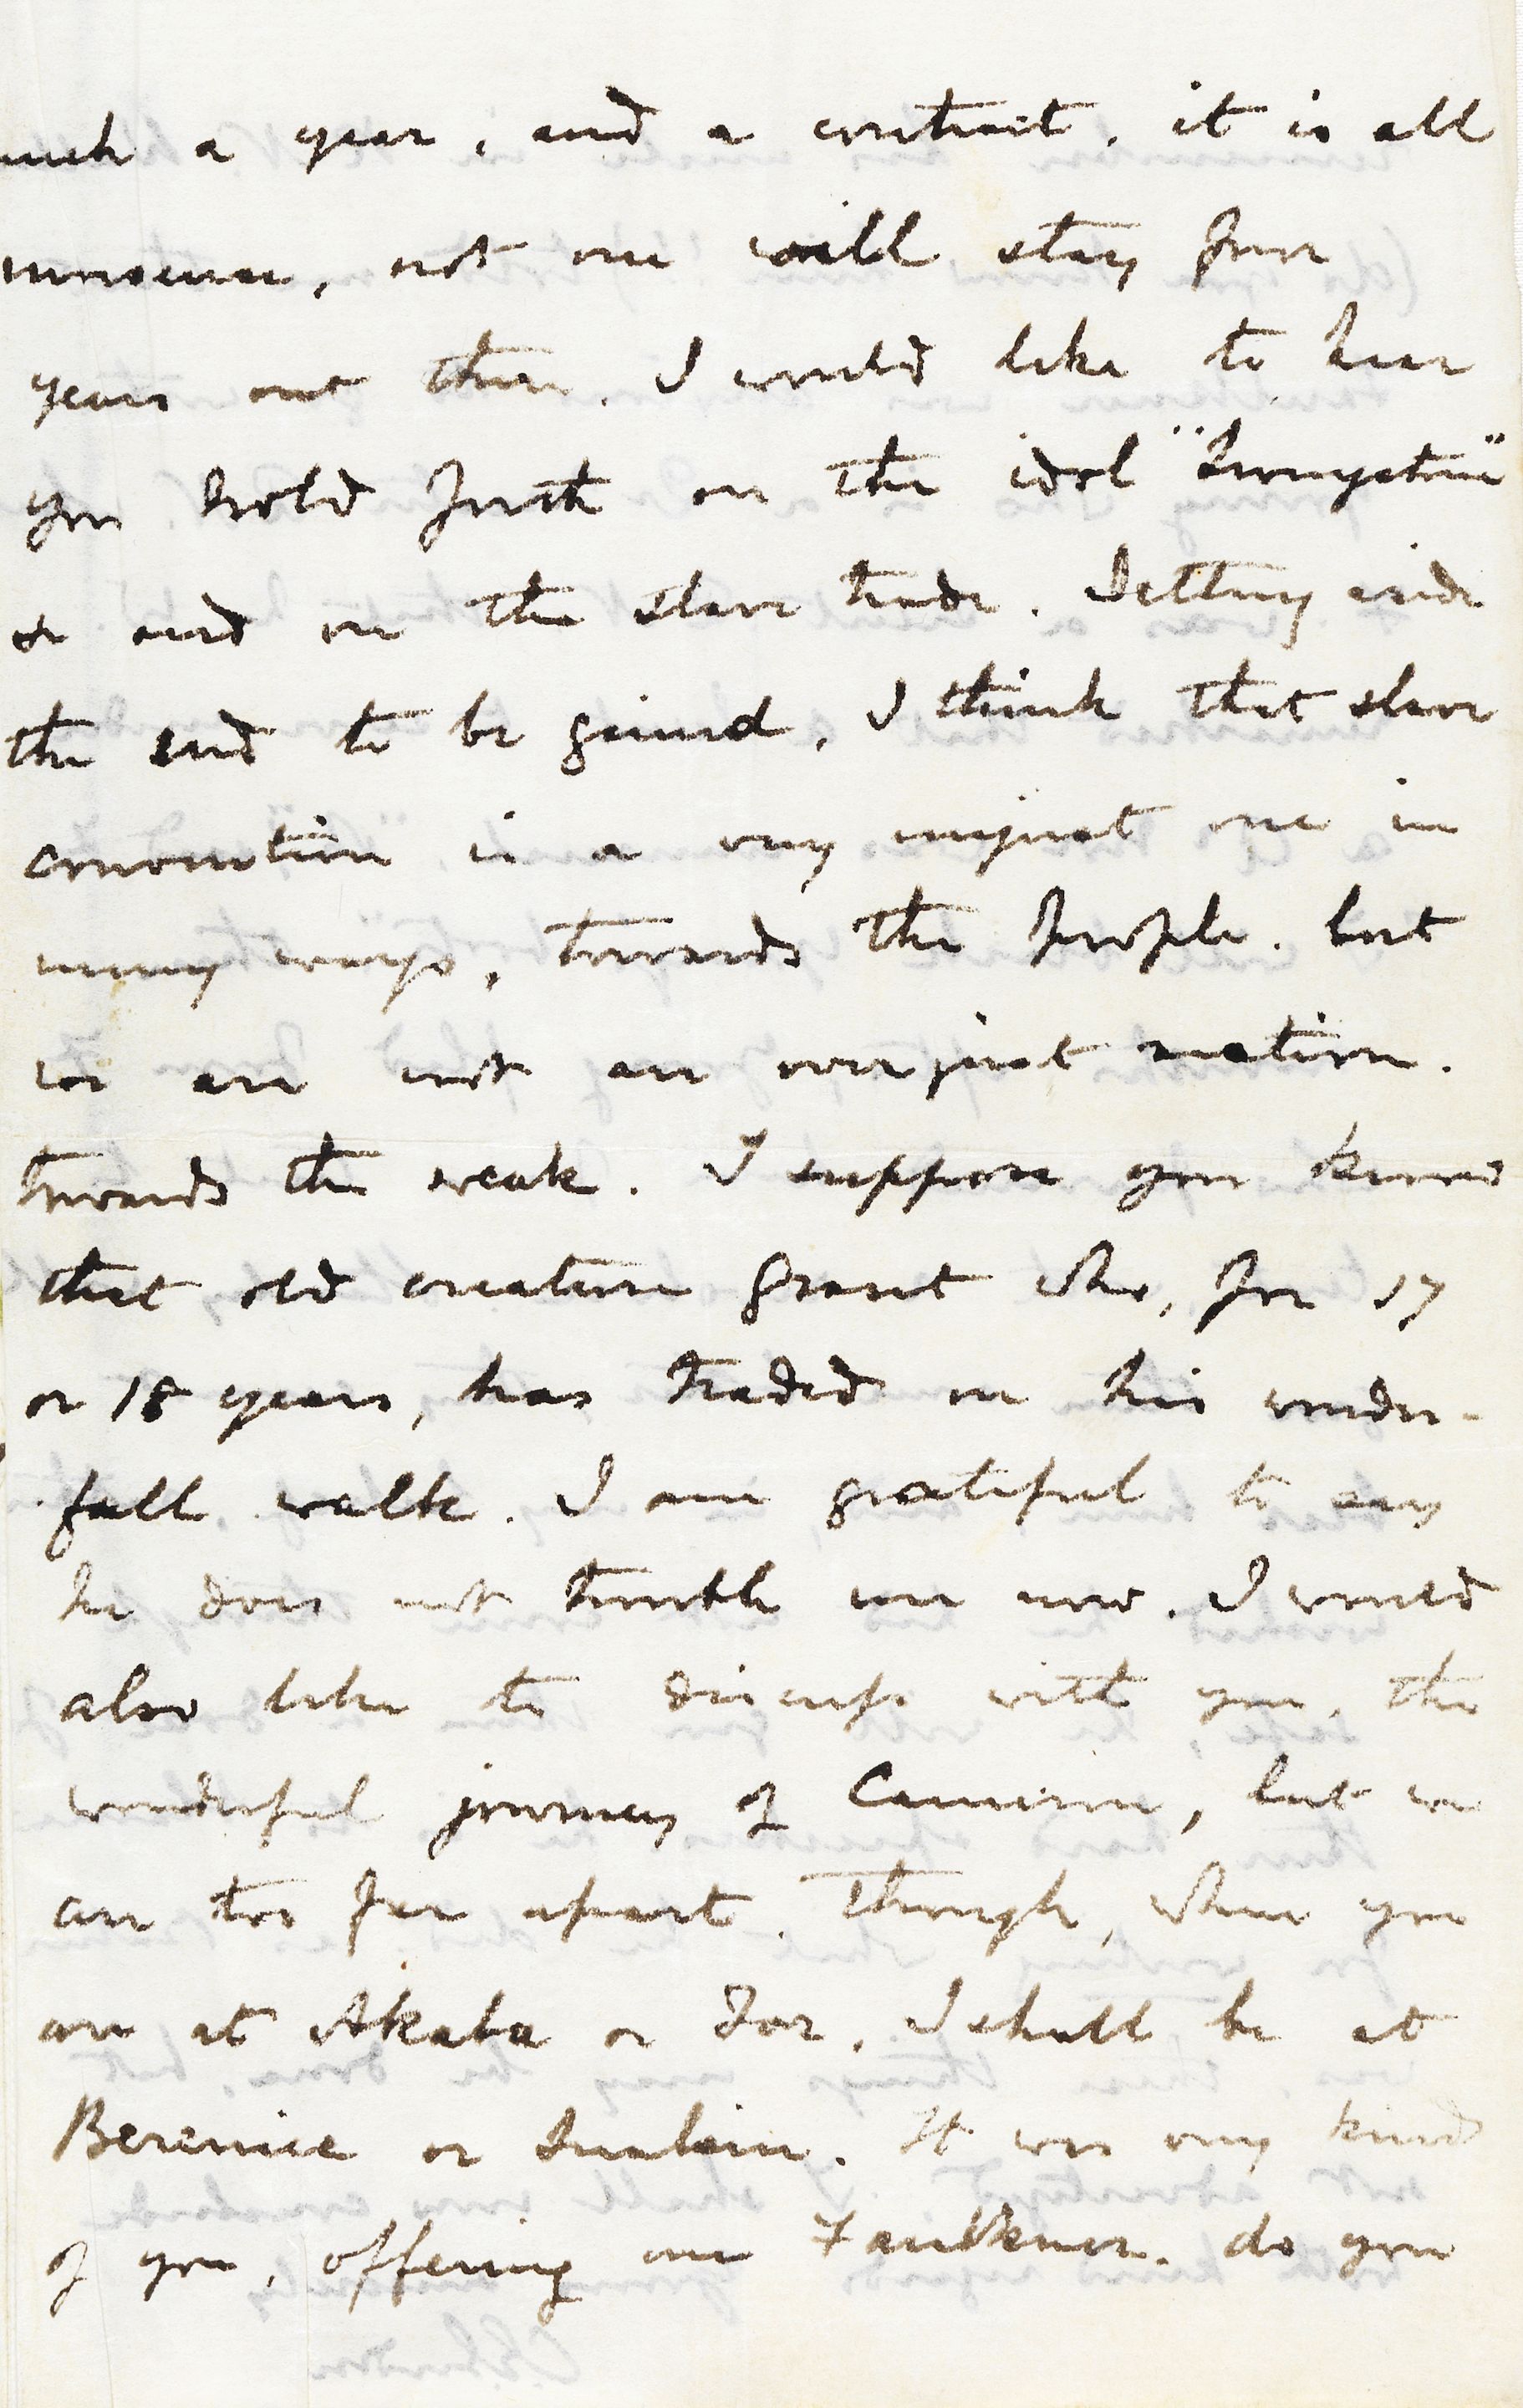 such a year, and a contract, it is all
nonsense, not one will stay four
years out there. I would like to hear
you hold forth on the idol "Livingstone"
& and on the slave trade. Setting aside
the end to be gained, I think that slave
convention is a very unjust one in
many ways, towards the people. but
we are not an over just nation.
towards the weak. I suppose you know
that old creature Grant who, for 17
or 18 years, has traded on his wonder-
full walk. I am grateful to say
he does not trouble me now. I would
also like to discuss with you, the
wonderful journey of Cameron, but we
are too far apart. Though, when you
are at Akaba or Tor, I shall be at
Berenice or Suakin. It was very kind
of you, offering me Faulkner. do you